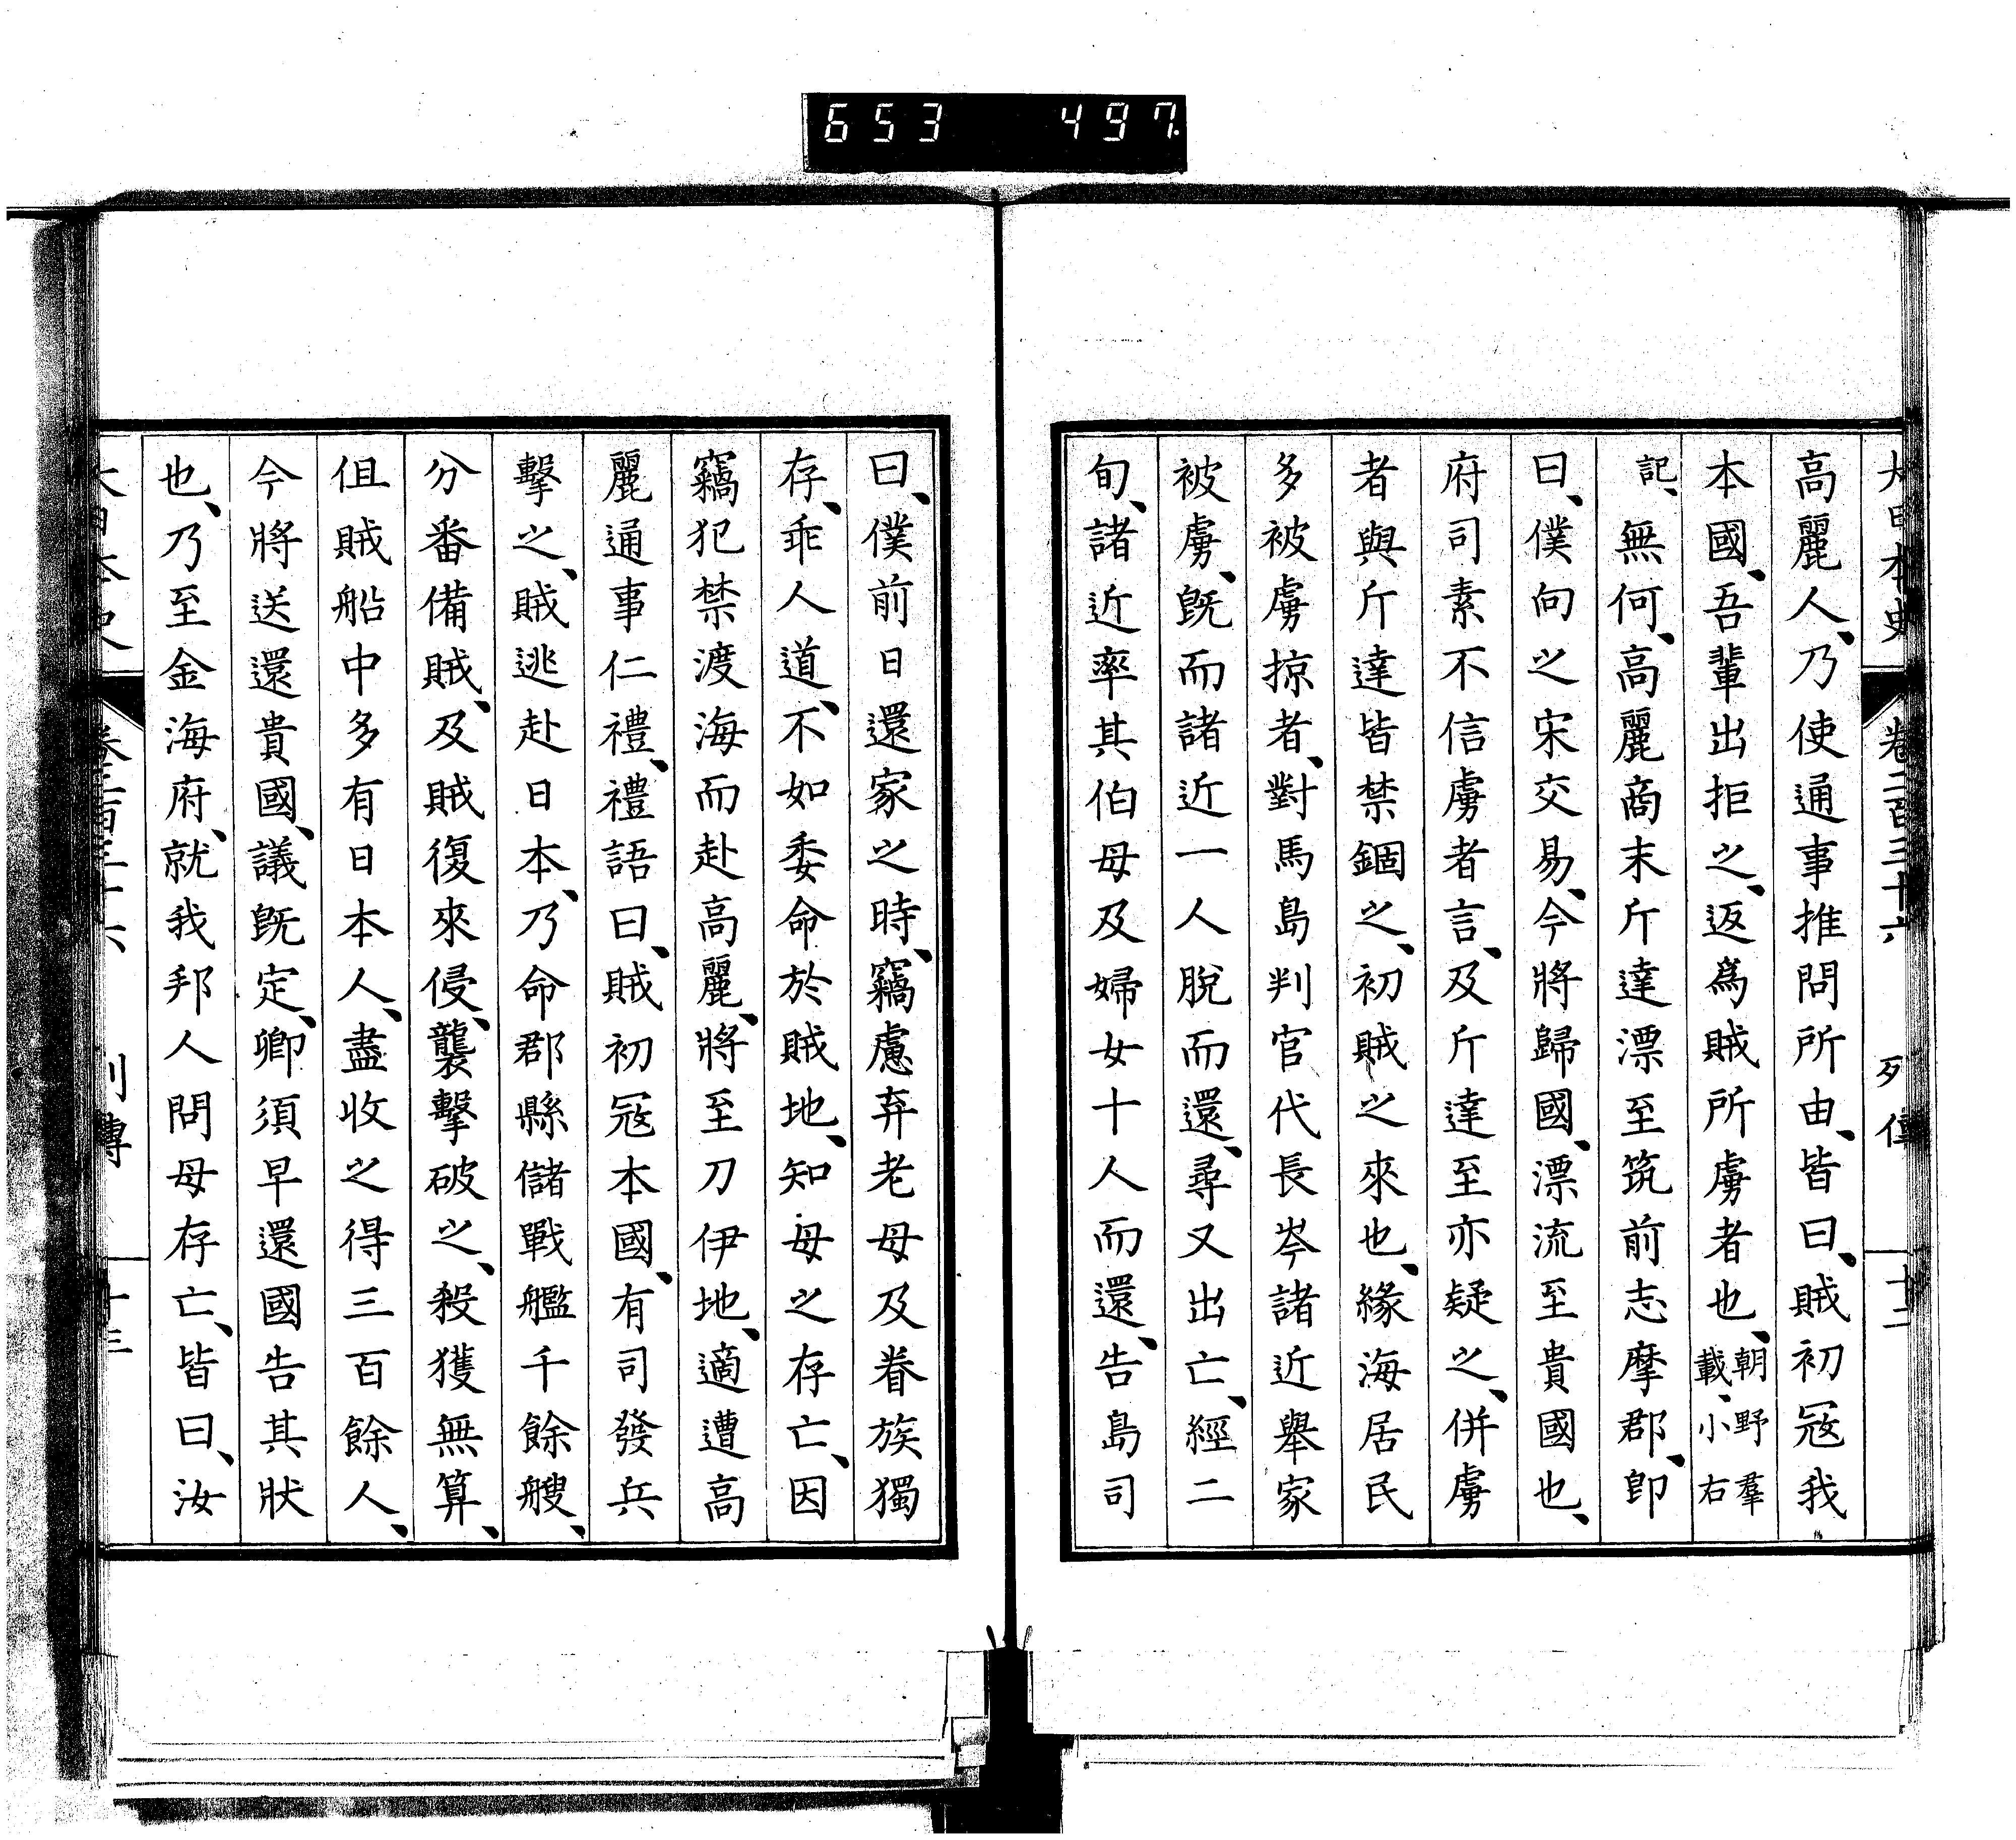 653 497.
大日本史 卷二百三十六 列傳 十二
高麗人、乃使通事推問所由、皆曰、賊初寇我
本國、吾輩出拒之、返爲賊所虜者也、朝野羣
載、小右
記、無何、高麗商未斤達漂至筑前志摩郡、卽
曰、僕向之宋交易、今將歸國、漂流至貴國也、
府司素不信虜者言、及斤達至亦疑之、併虜
者與斤達皆禁錮之、初賊之來也、緣海居民
多被虜掠者、對馬島判官代長岑諸近舉家
被虜、旣而諸近一人脫而還、尋又出亡、經二
旬、諸近率其伯母及婦女十人而還、告島司
曰、僕前日還家之時、竊慮弃老母及眷族獨
存、乖人道、不如委命於賊地、知母之存亡、因
竊犯禁渡海而赴高麗、將至刀伊地、適遭高
麗通事仁禮、禮語曰、賊初寇本國、有司發兵
擊之、賊逃赴日本、乃命郡縣儲戰艦千餘艘、
分番備賊、及賊復來侵、襲擊破之、殺獲無算、
但賊船中多有日本人、盡收之得三百餘人、
今將送還貴國、議旣定、卿須早還國告其狀
也、乃至金海府、就我邦人問母存亡、皆曰、汝
大日本史 卷二百三十六 列傳 十三